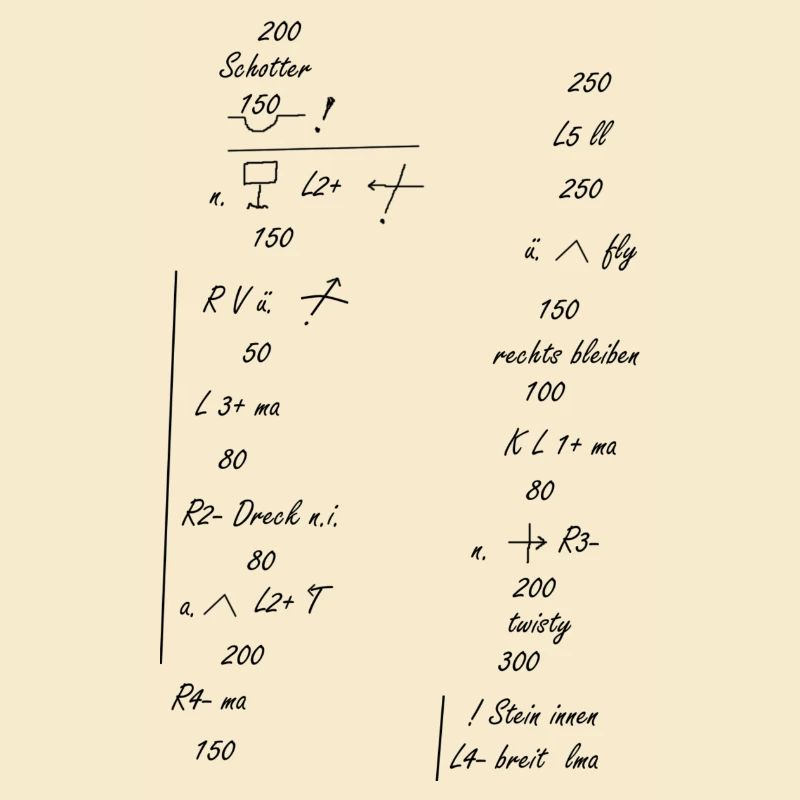 200
Schotter
150 !
n. L2+
150
R V ü.
50
L 3+ ma
80
R2- Dreck n.i.
80
a. L2+
200
R4- ma
150
250
L5 ll
250
ü. fly
150
rechts bleiben
100
K L 1+ ma
80
n. R3-
200
twisty
300
! Stein innen
L4- breit lma